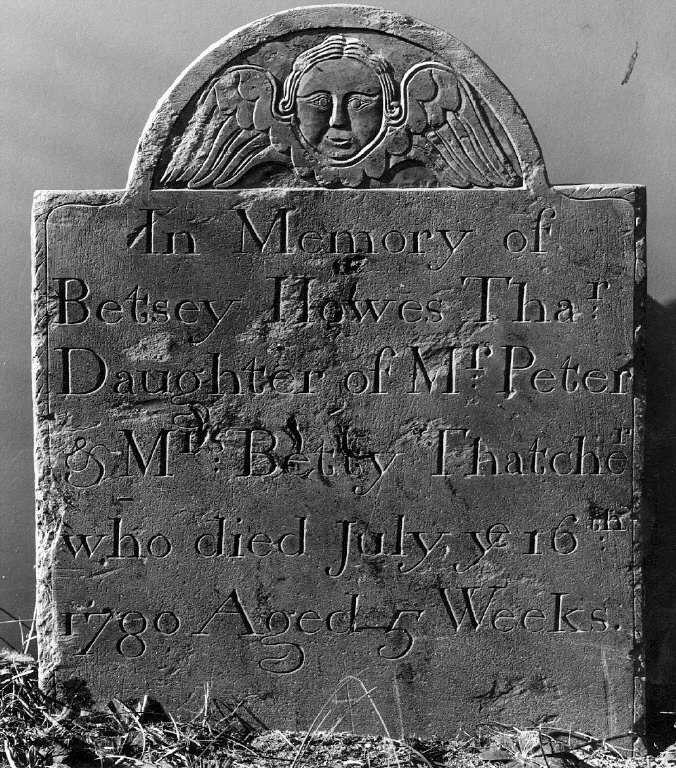 In Memory of
Betsey Howes Thar
Daughter of Mr Peter
& Mrs Betty Thatcher
who died July ye 16th
1780 Aged 5 Weeks.